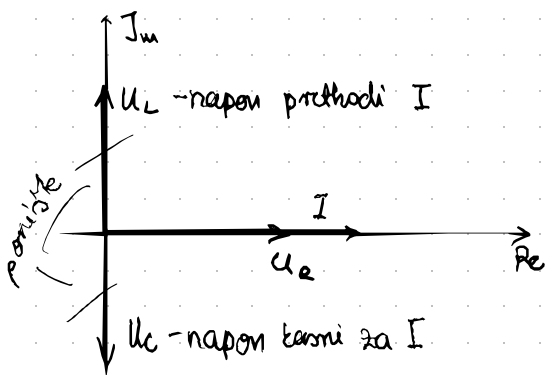 Im
U_L - napon prethodi I
ponište
I
U_R
Re
U_C - napon kasni za I